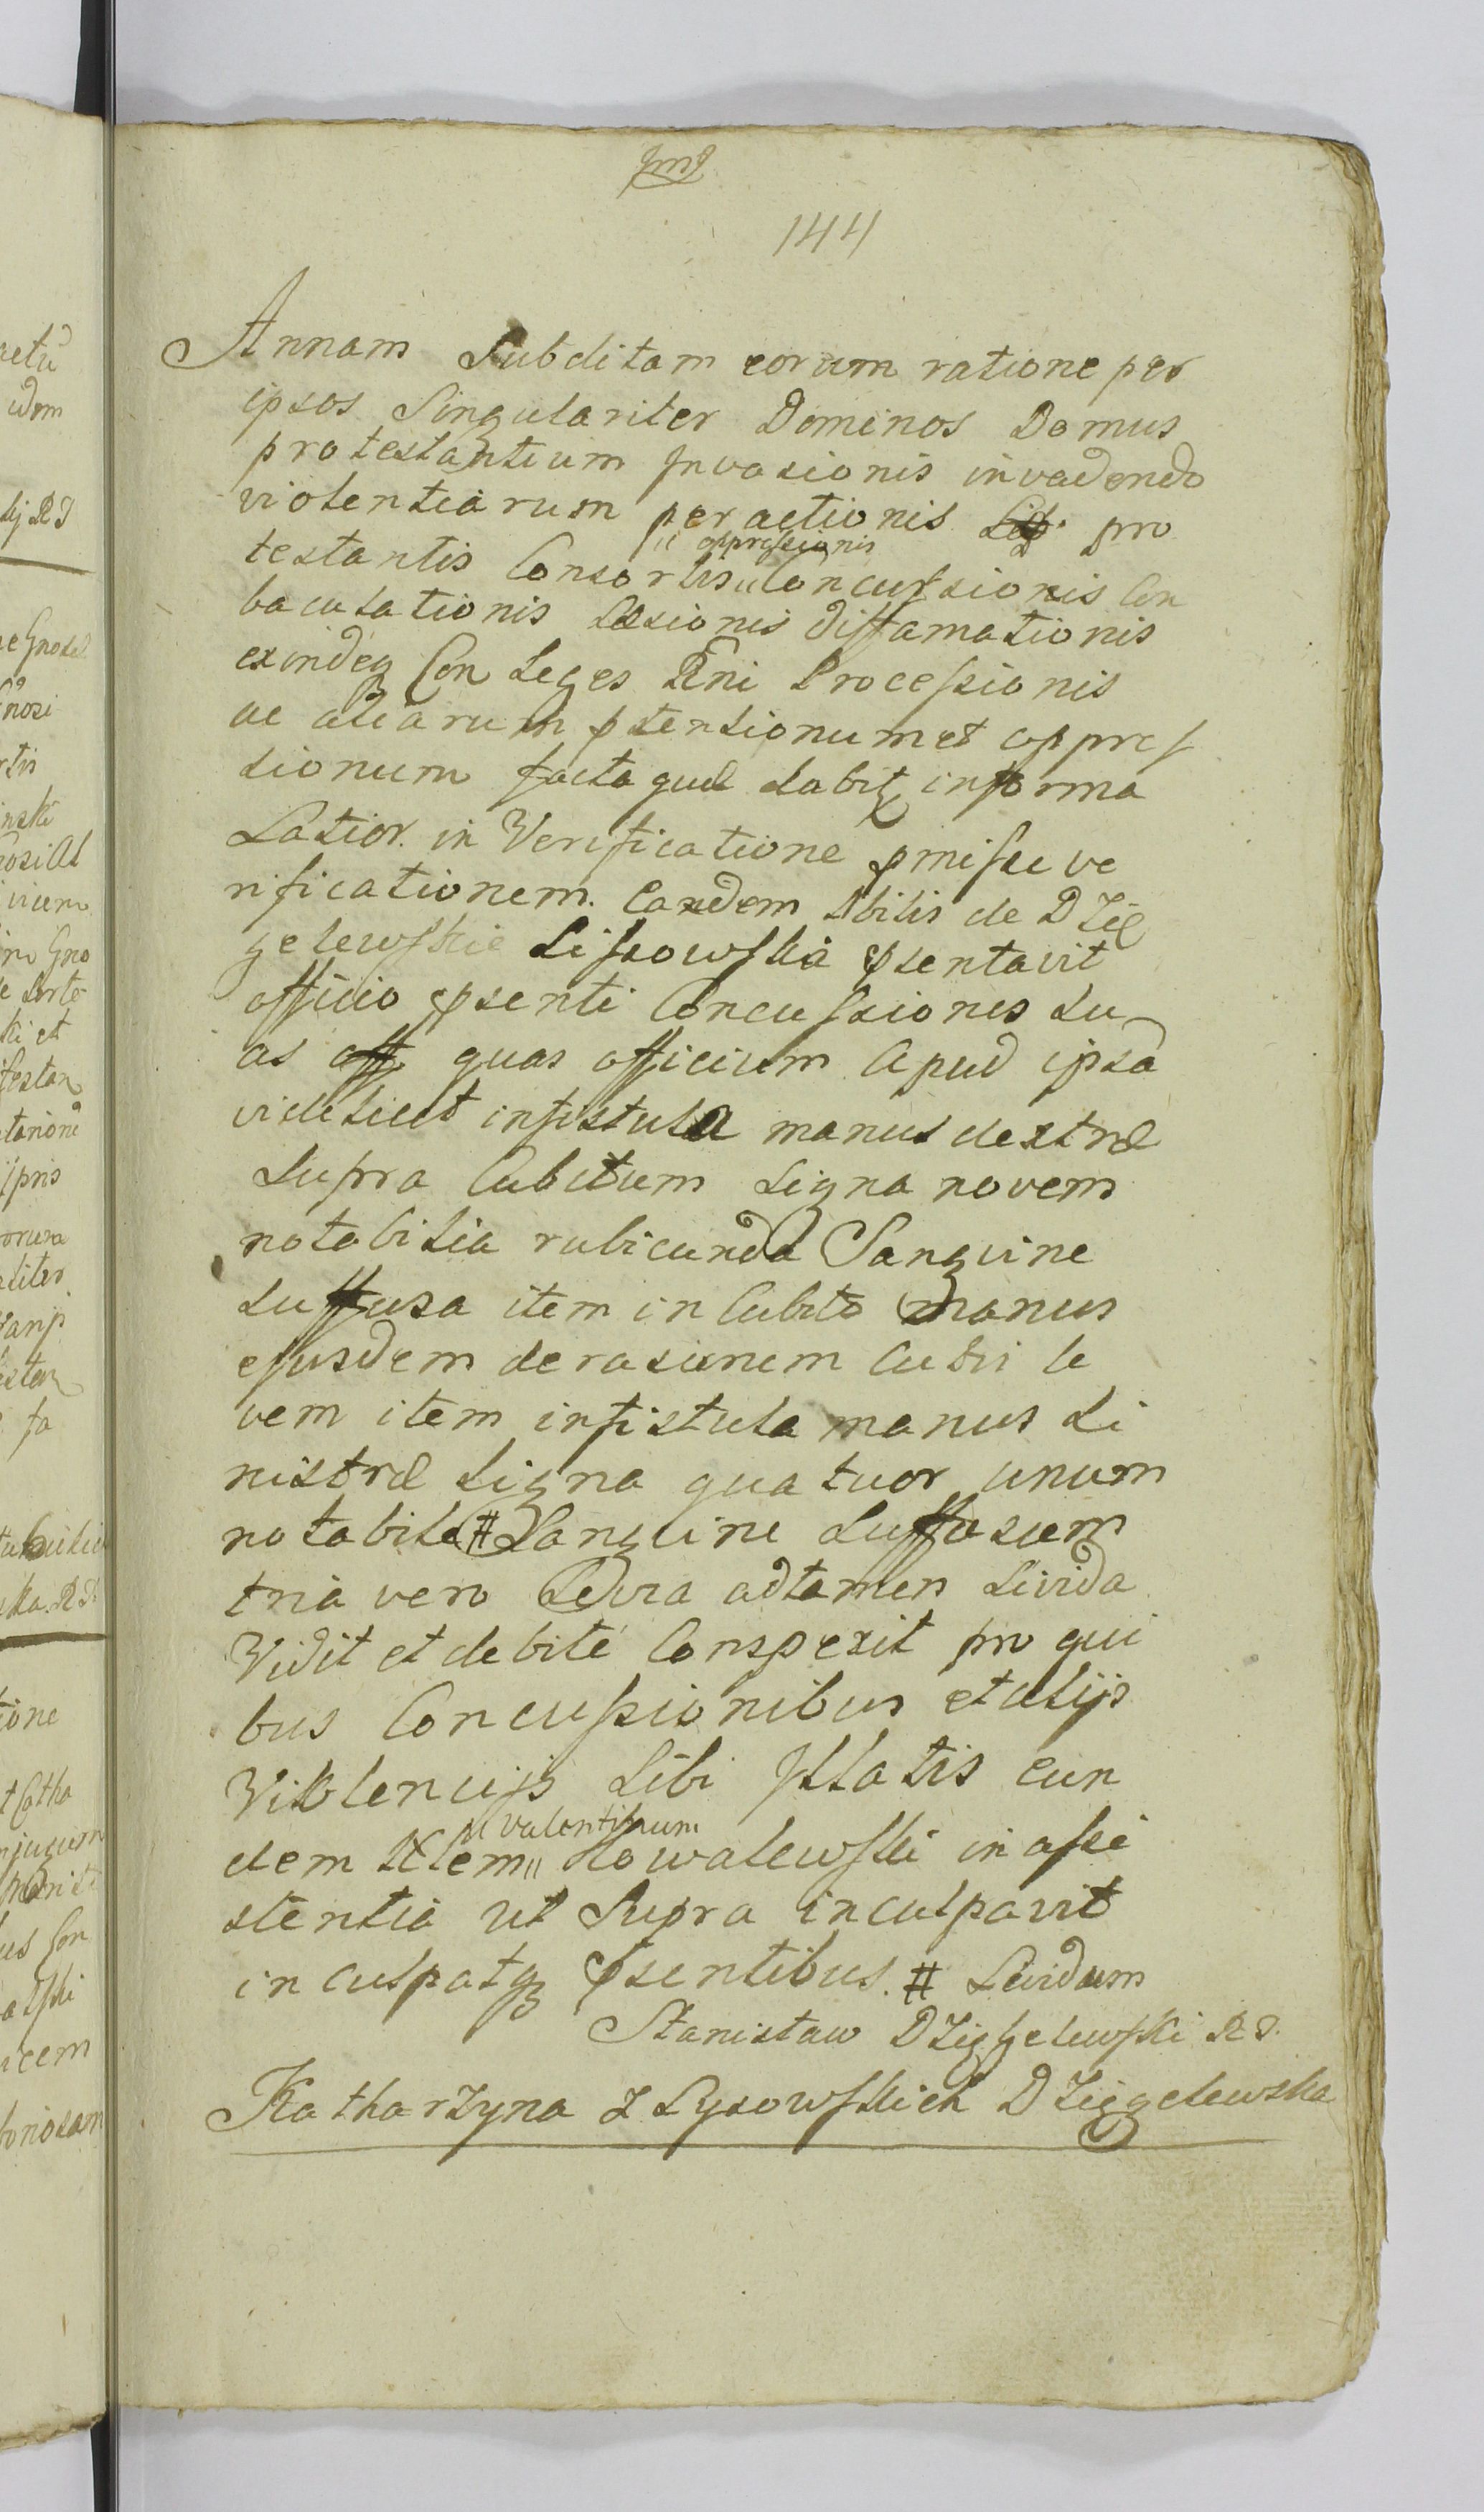 144
Annam Subditam eorum ratione per
ipsos Singulariter Dominos Domus
protestantium Invasionis invadendo
violentiarum peractionis pro
testantis Consortis " oppressionis Concussionis Con
baculationis Læsionis diffamationis
exindeq Con Leges Rni Processionis
ac aliarum ptensionum et oppres
sionum facta quæ habitq informa
Latior. in Verificatione pmisse ve
rificationem. Eandem Nbilis de DZię
gelewskie Lissowska psentavit
officio psenti Concussiones su
as quas officium apud ipsã
videlicet in fistula manus dextræ
supra Cubitum Signa novem
notabilia rubicunda Sanguine
suffusa item in Cubito manus
ejusdem derasionem Cutis le
vem item in fistula manus Si
nistræ Signa quatuor unum
notabile # Sanguine suffusum
tria vero Levia adtamen Livida
Vidit et debite Conspexit pro qui
bus Concussionibus et alijs
Violencijs Sibi Illatis eun
dem Nlem " Valentinum Kowalewski in assi
stentia ut Supra inculpavit
inculpatq psentibus. # Lividum
Stanisław DZięgelewski R S.
Katharzyna z Lysowskich DZięgelewska